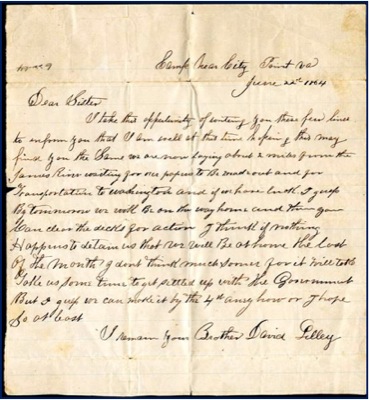 Camp Near City Point va
June 22nd 1864
Dear Sister
I take this oppertunity of writing you these few lines
to enform you that I am well at this time hopeing this may
find you the Same we are now laying about 2 miles from the
James River waiting for our papers to Be made out and for
Transportation to washington and if we have luck I guess
By tommorow we will Be on the way home and then you
Can clear the decks for action I think if nothing
Happens to detain us that we will Be at home the last
Of the month I dont think much sooner for it will take
us some time to get settled up with the Government
But I guess we can make it by the 4th any how or I hope
So at least
I remain Your Brother David Pelley